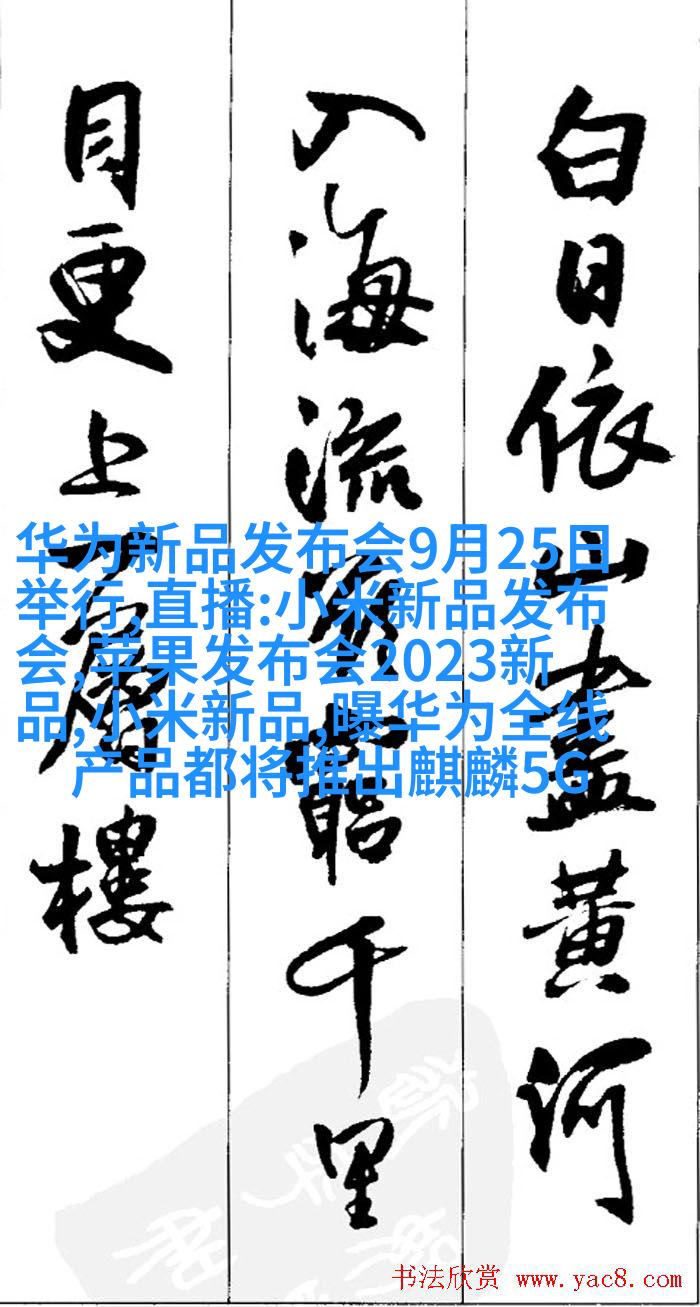 白日依山盡黄河
入海流欲窮千里
目更上一層樓
华为新品发布会9月25日
举行,直播:小米新品发布
会,苹果发布会2023新
品,小米新品,曝华为全线
产品都将推出麒麟5G
书法欣赏 www.yac8.com